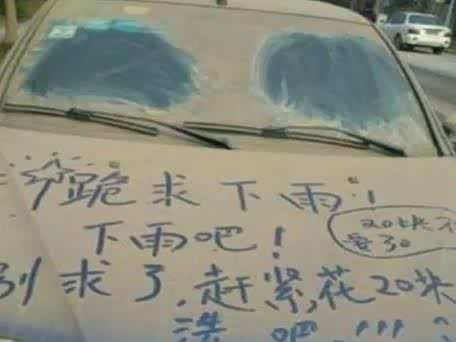 跪求下雨!
下雨吧!
20块
别求了,赶紧花20块
洗吧!!!